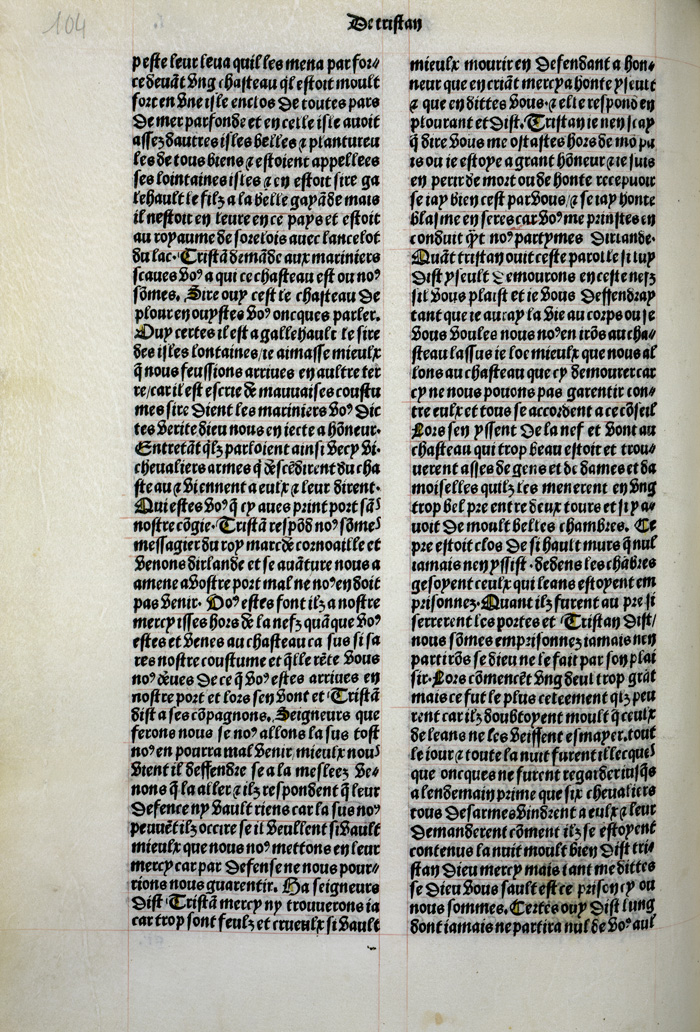 104
De tristan
peste leur leua quil les mena par for⸗
ce deuāt vng chasteau ql̄ estoit moult
fort en vne isle enclos de toutes pars
de mer parfonde et en celle isle auoit
assez dautres isles belles ⁊ plantureu
les de tous biens ⁊ estoient appellees
ses lointaines isles ⁊ en estoit sire ga
lehault le filz a la belle gayāde mais
il nestoit en leure en ce pays et estoit
au royaume de sorelois auec lancelot
du lac. Tristā demāde aux mariniers
scaues voꝰ a qui ce chasteau est ou noꝰ
sōmes. Sire ouy cest le chasteau de
plour en ouystes voꝰ oncques parler.
Ouy certes il est a gallehault le sire
des isles lontaines/ie aimasse mieulx
q̄ nous feussions arriues en aultre ter
re/car il est escrie de mauuaises coustu
mes sire dient les mariniers voꝰ dic
tes verite dieu nous en iecte a hōneur.
Entretāt ql̄z parloient ainsi vecy vi.
cheualiers armes q̄ descēdirent du cha
steau ⁊ viennent a eulx ⁊ leur dirent.
Qui estes voꝰ q̄ cy aues print port sāˢ
nostre cōgie. Tristā respōd noꝰ sōmeˢ
messagier du roy marc de cornoaille et
venons dirlande et se auāture nous a
amene a vostre port mal ne noꝰ en doit
pas venir. Voꝰ estes font ilz a nostre
mercy isses hors de la nefz quāque voꝰ
estes et venes au chasteau ca sus si sa
res nostre coustume et q̄lle rēte vous
noꝰ dēues de ce q̄ voꝰ estes arriues en
nostre port et lors sen vont et Tristā
dist a ses cōpagnons. Seigneurs que
ferons nous se noꝰ allons la sus tost
noꝰ en pourra mal venir mieulx nouˢ
vient il deffendre se a la mesleez ve⸗
nons q̄ la aller ⁊ ilz respondent q̄ leur
defence ny vault riens car la sus noꝰ
peuuēt ilz occire se il veullent si vault
mieulx que nous noꝰ mettons en leur
mercy car par defense ne nous pour⸗
rions nous guarentir. Ha seigneurs
dist Tristā mercy ny trouuerons ia
car trop sont feulz et crueulx si vault
mieulx mourir en defendant a hon⸗
neur que en criāt mercy a honte yseult
⁊ que en dittes vous. ⁊ elle respond en
plourant et dist. Tristan ie nen scay
q̄ dire vous me ostastes hors de mō pa
is ou ie estoye a grant hōneur ⁊ ie suis
en peril de mort ou de honte recepuoir
se iay bien cest par vous/⁊ se iay honte
blasme en seres car voꝰ me prinstes en
conduit q̄t noꝰ partymes dirlande.
Quāt tristan ouit ceste parolle si luy
dist yseult demourons en ceste nefz
sil vous plaist et ie vous deffendray
tant que ie auray la vie au corps ou se
vous voules nous noꝰ en irōs au cha⸗
steau lassus ie loc mieulx que nous al
lons au chasteau que cy demourer car
cy ne nous pouons pas garentir con⸗
tre eulx et tous se accordent a ce cōseil
Lors sen yssent de la nef et vont au
chasteau qui trop beau estoit et trou⸗
uerent asses de gens et de dames et da
moiselles quilz les menerent en vng
trop bel pre entre deux tours et si y a⸗
uoit de moult belles chambres. Ce
pre estoit clos de si hault murs q̄ nul
iamais nen yssist. dedens les chābres
gesoyent ceulx qui leans estoyent em
prisonnez. Quant ilz furent au pre si
serrerent les portes et Tristan dist/
nous sōmes emprisonnez iamais nen
partirōs se dieu ne le fait par son plai
sir. Lors cōmencēt vng deul trop grāt
mais ce fut le plus celeement qlz peu
rent car ilz doubtoyent moult q̄ ceulx
de leans ne les veissent esmayer. tout
le iour ⁊ toute la nuit furent illecqueˢ
que oncques ne furent regarde iusq̄s
a lendemain prime que six cheualiers
tous desarmes vindrent a eulx ⁊ leur
demanderent cōment ilz se estoyent
contenus la nuit moult bien dist tri⸗
stan dieu mercy mais tant me dittes
se dieu vous sault est ce prison cy ou
nous sommes. Certes ouy dist lung
dont iamais ne partira nul de voꝰ aul